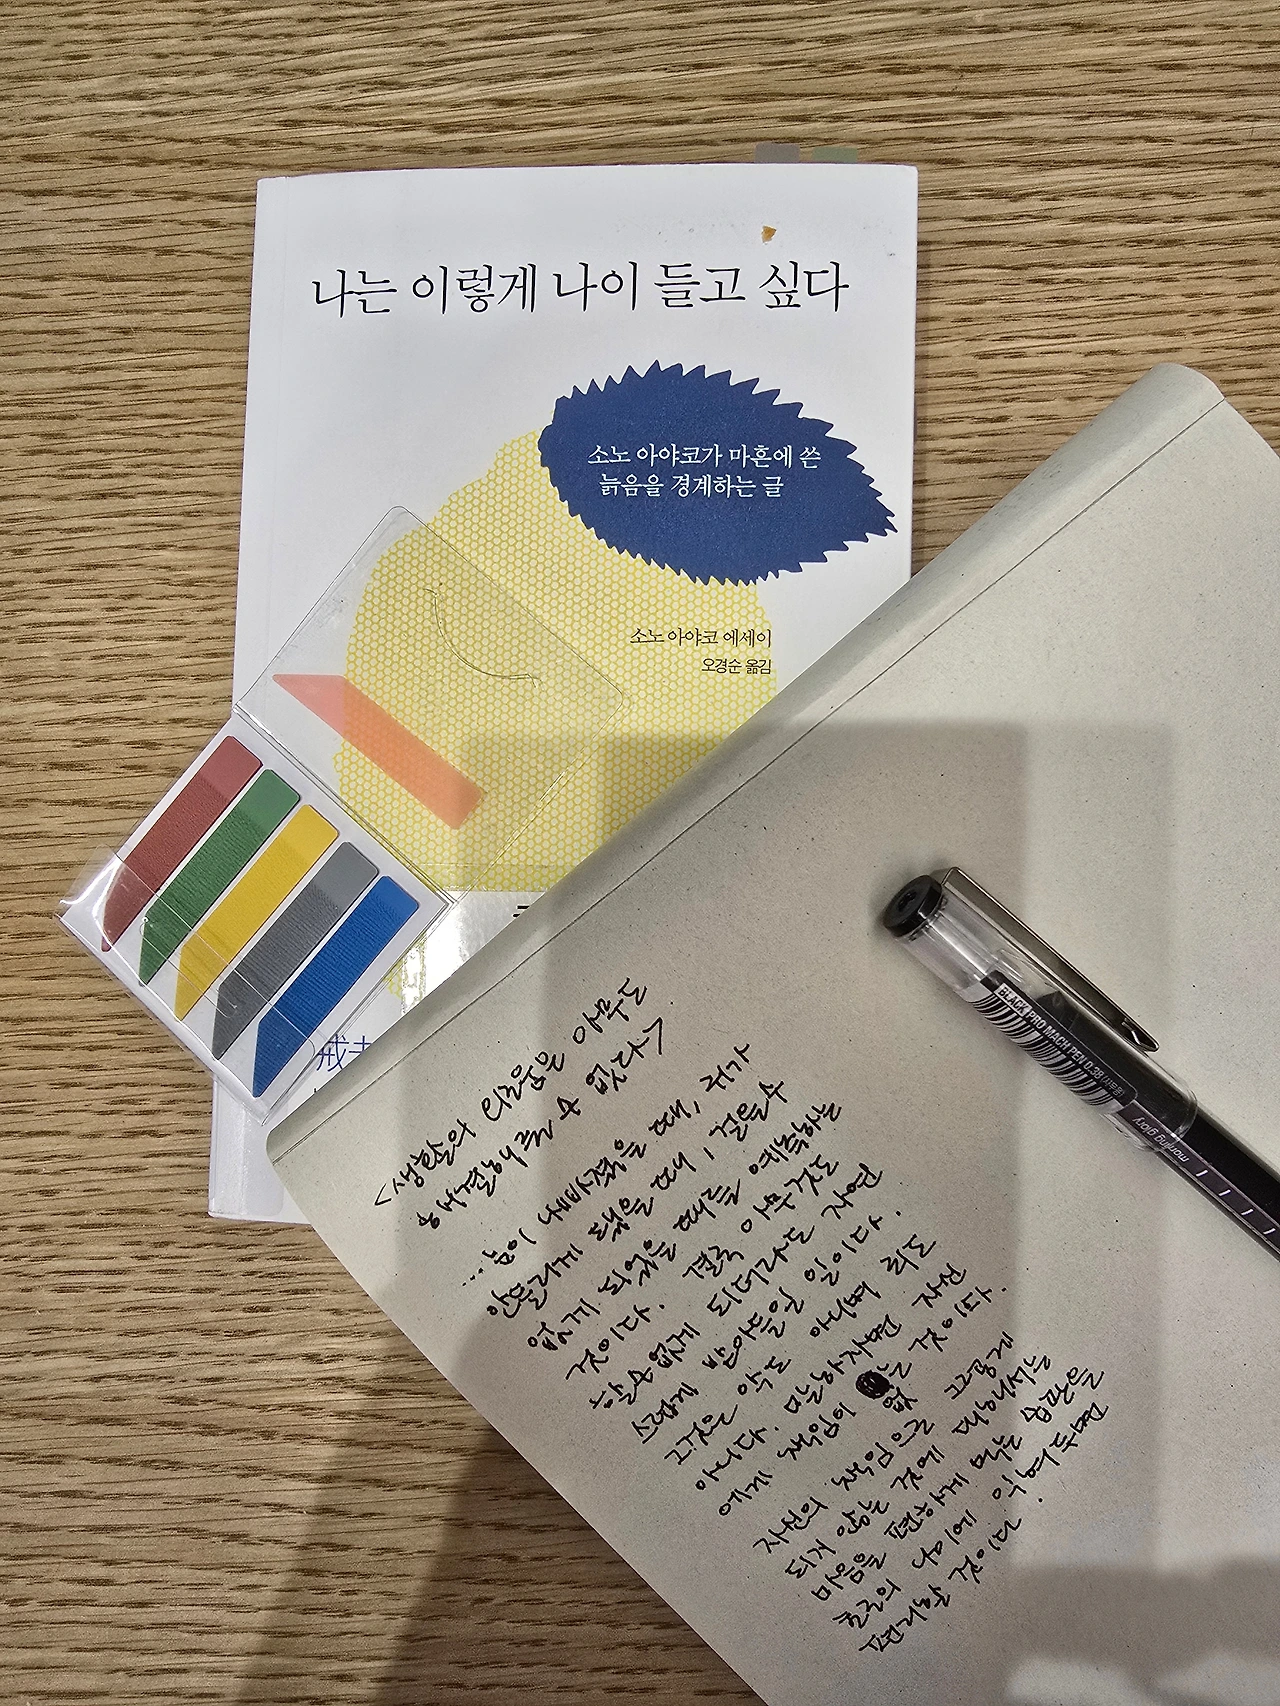 나는 이렇게 나이 들고 싶다
소노 아야코가 마흔에 쓴
늙음을 경계하는 글
소노 아야코 에세이
오경순 옮김
戒老
BLACK PRO MACH PEN 0.38 (사무용)
morning glory
<생활의 외로움은 아무도
해결해 줄 수 없다>
...눈이 나빠졌을 때, 귀가
안들리게 됐을 때, 걸을 수
없게 되었을 때를 예측하는
것이다. 결국 아무것도
할 수 없게 되더라도 자연
스럽게 받아들일 일이다.
그것은 악도 아니며 죄도
아니다. 말하자면 자신
에게 책임이 없는 것이다.
자신의 책임으로 그렇게
되지 않는 것에 대해서는
마음을 편하게 먹는 습관을
젊은 나이에 익혀두면
편리할 것이다.